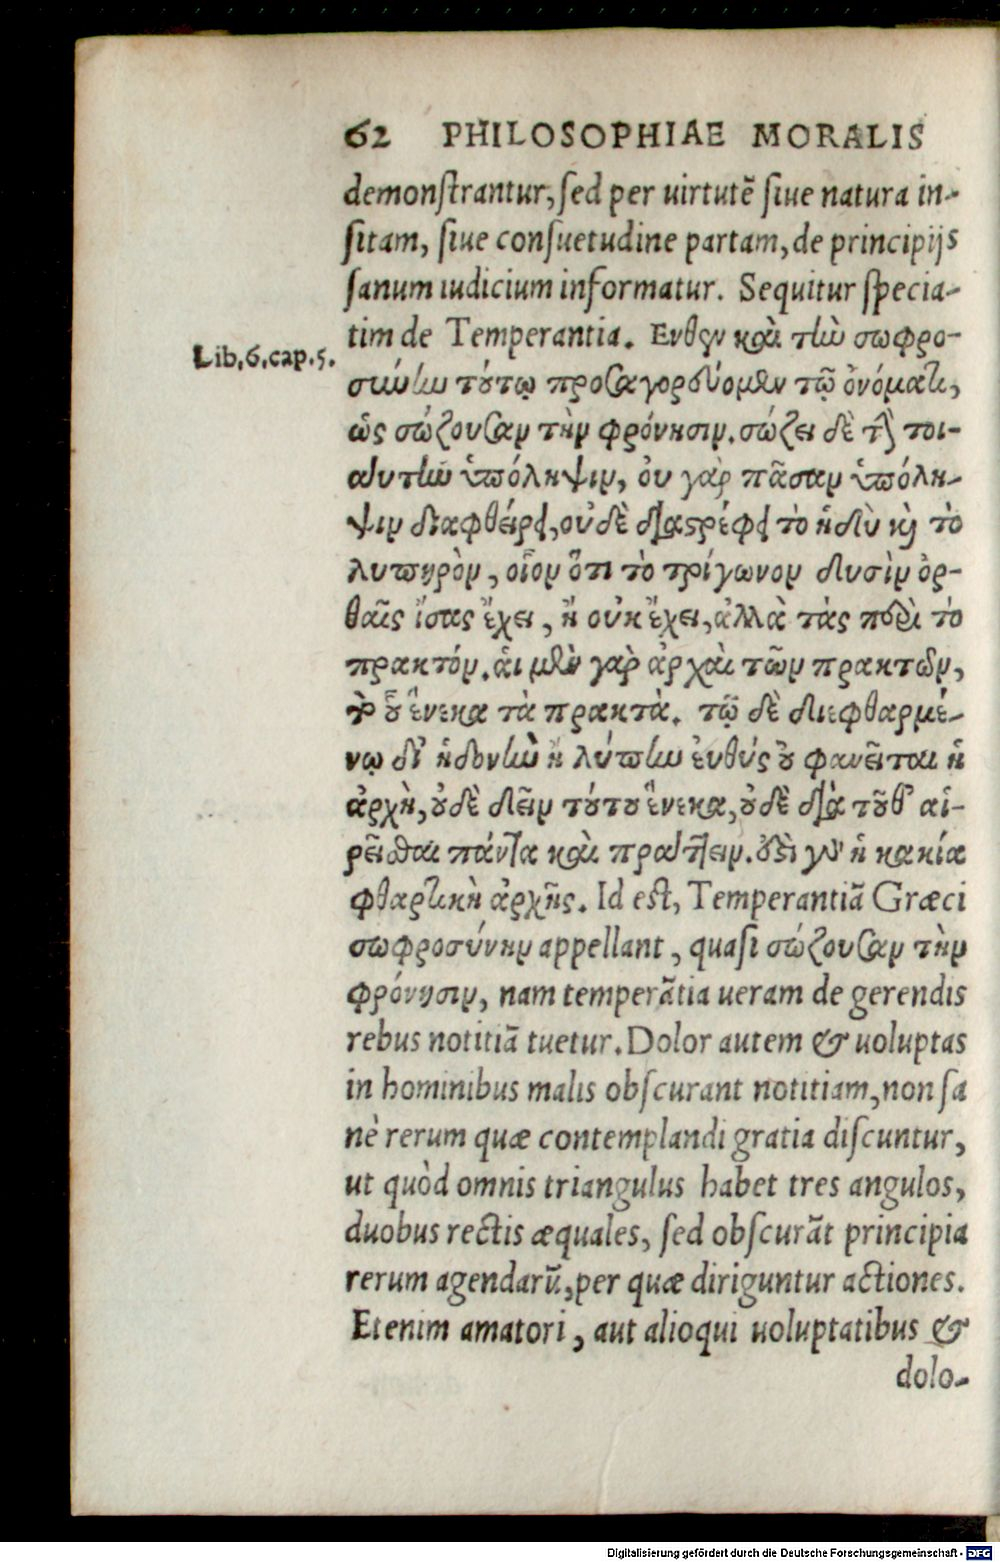 62 PHILOSOPHIAE MORALIS
demonſtrantur, ſed per uirtutẽ ſiue natura in-
ſitam, ſiue conſuetudine partam, de principijs
ſanum iudicium informatur. Sequitur ſpecia-
tim de Temperantia. Ενθεν καὶ τὴν σωφρο-
Lib. 6. cap. 5.
σύνην τούτῳ προσαγορεύομεν τῷ ὀνόματι,
ὡς σώζουσαν τὴν φρόνησιν. σώζει δὲ τὴν τοι-
αύτην ὑπόληψιν, ὀυ γὰρ πᾶσαν ὑπόλη-
ψιν διαφθείρει, ουδὲ διαστρέφει τὸ ἡδὺ καὶ τὸ
λυπηρὸν, οἷον ὅτι τὸ τρίγωνον δυσὶν ὀρ-
θαῖς ἴσας ἔχει, ἢ ουκ ἔχει, ἀλλὰ τὰς περὶ τὸ
πρακτόν. ἁι μὲν γὰρ ἀρχαὶ τῶν πρακτῶν,
τὸ οὗ ἕνεκα τὰ πρακτὰ. τῷ δὲ διεφθαρμέ-
νῳ δι' ἡδονὴν ἢ λύπην ἐυθύς ὀυ φανεῖται ἡ
ἀρχὴ, ὀυδὲ δεῖν τούτου ἕνεκα, ὀυδὲ διὰ τοῦθ' αἱ-
ρεῖσθαι πάντα καὶ πράττειν. ἔστι γὰρ ἡ κακία
φθαρτικὴ ἀρχῆς. Id eſt, Temperantiã Græci
σωφροσύνην appellant, quaſi σώζουσαν τὴν
φρόνησιν, nam temperãtia ueram de gerendis
rebus notitiã tuetur. Dolor autem & uoluptas
in hominibus malis obſcurant notitiam, non ſa
nè rerum quæ contemplandi gratia diſcuntur,
ut quòd omnis triangulus habet tres angulos,
duobus rectis æquales, ſed obſcurãt principia
rerum agendarũ, per quæ diriguntur actiones.
Etenim amatori, aut alioqui uoluptatibus &
dolo-
Digitalisierung gefördert durch die Deutsche Forschungsgemeinschaft - DFG